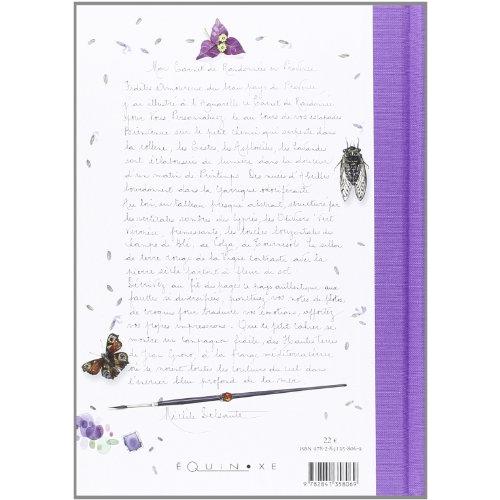 Mon Carnet de Randonnées en Provence
Fidèles Amoureux du beau pays de Provence
j'ai illustré à l'Aquarelle ce Carnet de Randonnée
pour vous Personnaliser, le au cours de vos escapades
Bienvenue sur le petit chemin qui serpente dans
la colline, les Cistes, les Asphodèles, les Lavandes
sont éclaboussés de lumière dans la douceur
d'un matin de Printemps. Des nuées d'Abeilles
bourdonnent dans la Garrigue odoriférante.
Au loin un tableau presque abstrait, structuré par
les verticales sombres des Cyprès, les Oliviers Vert
Véronèse, frémissants, les touches horizontales des
champs d'Blé, de Colza, de Tournesol. Le sillon
de terre rouge de la Vigne contraste avec la
pierre sèche à fleur de sol
au fil des pages le pays authentique aux
vos notes de
de croquis pour traduire vos émotions, apportez
vos propres impressions. Que ce petit cahier se
montre un compagnon fidèle, des Hautes Terres
de Jean Giono, à la frange méditerranéenne
où se noient toutes les couleurs du ciel dans
l'encrier bleu profond de la mer
Michèle
22 €
ISBN 978-2-84135-806-9
ÉQUINOXE
9 782841 358069